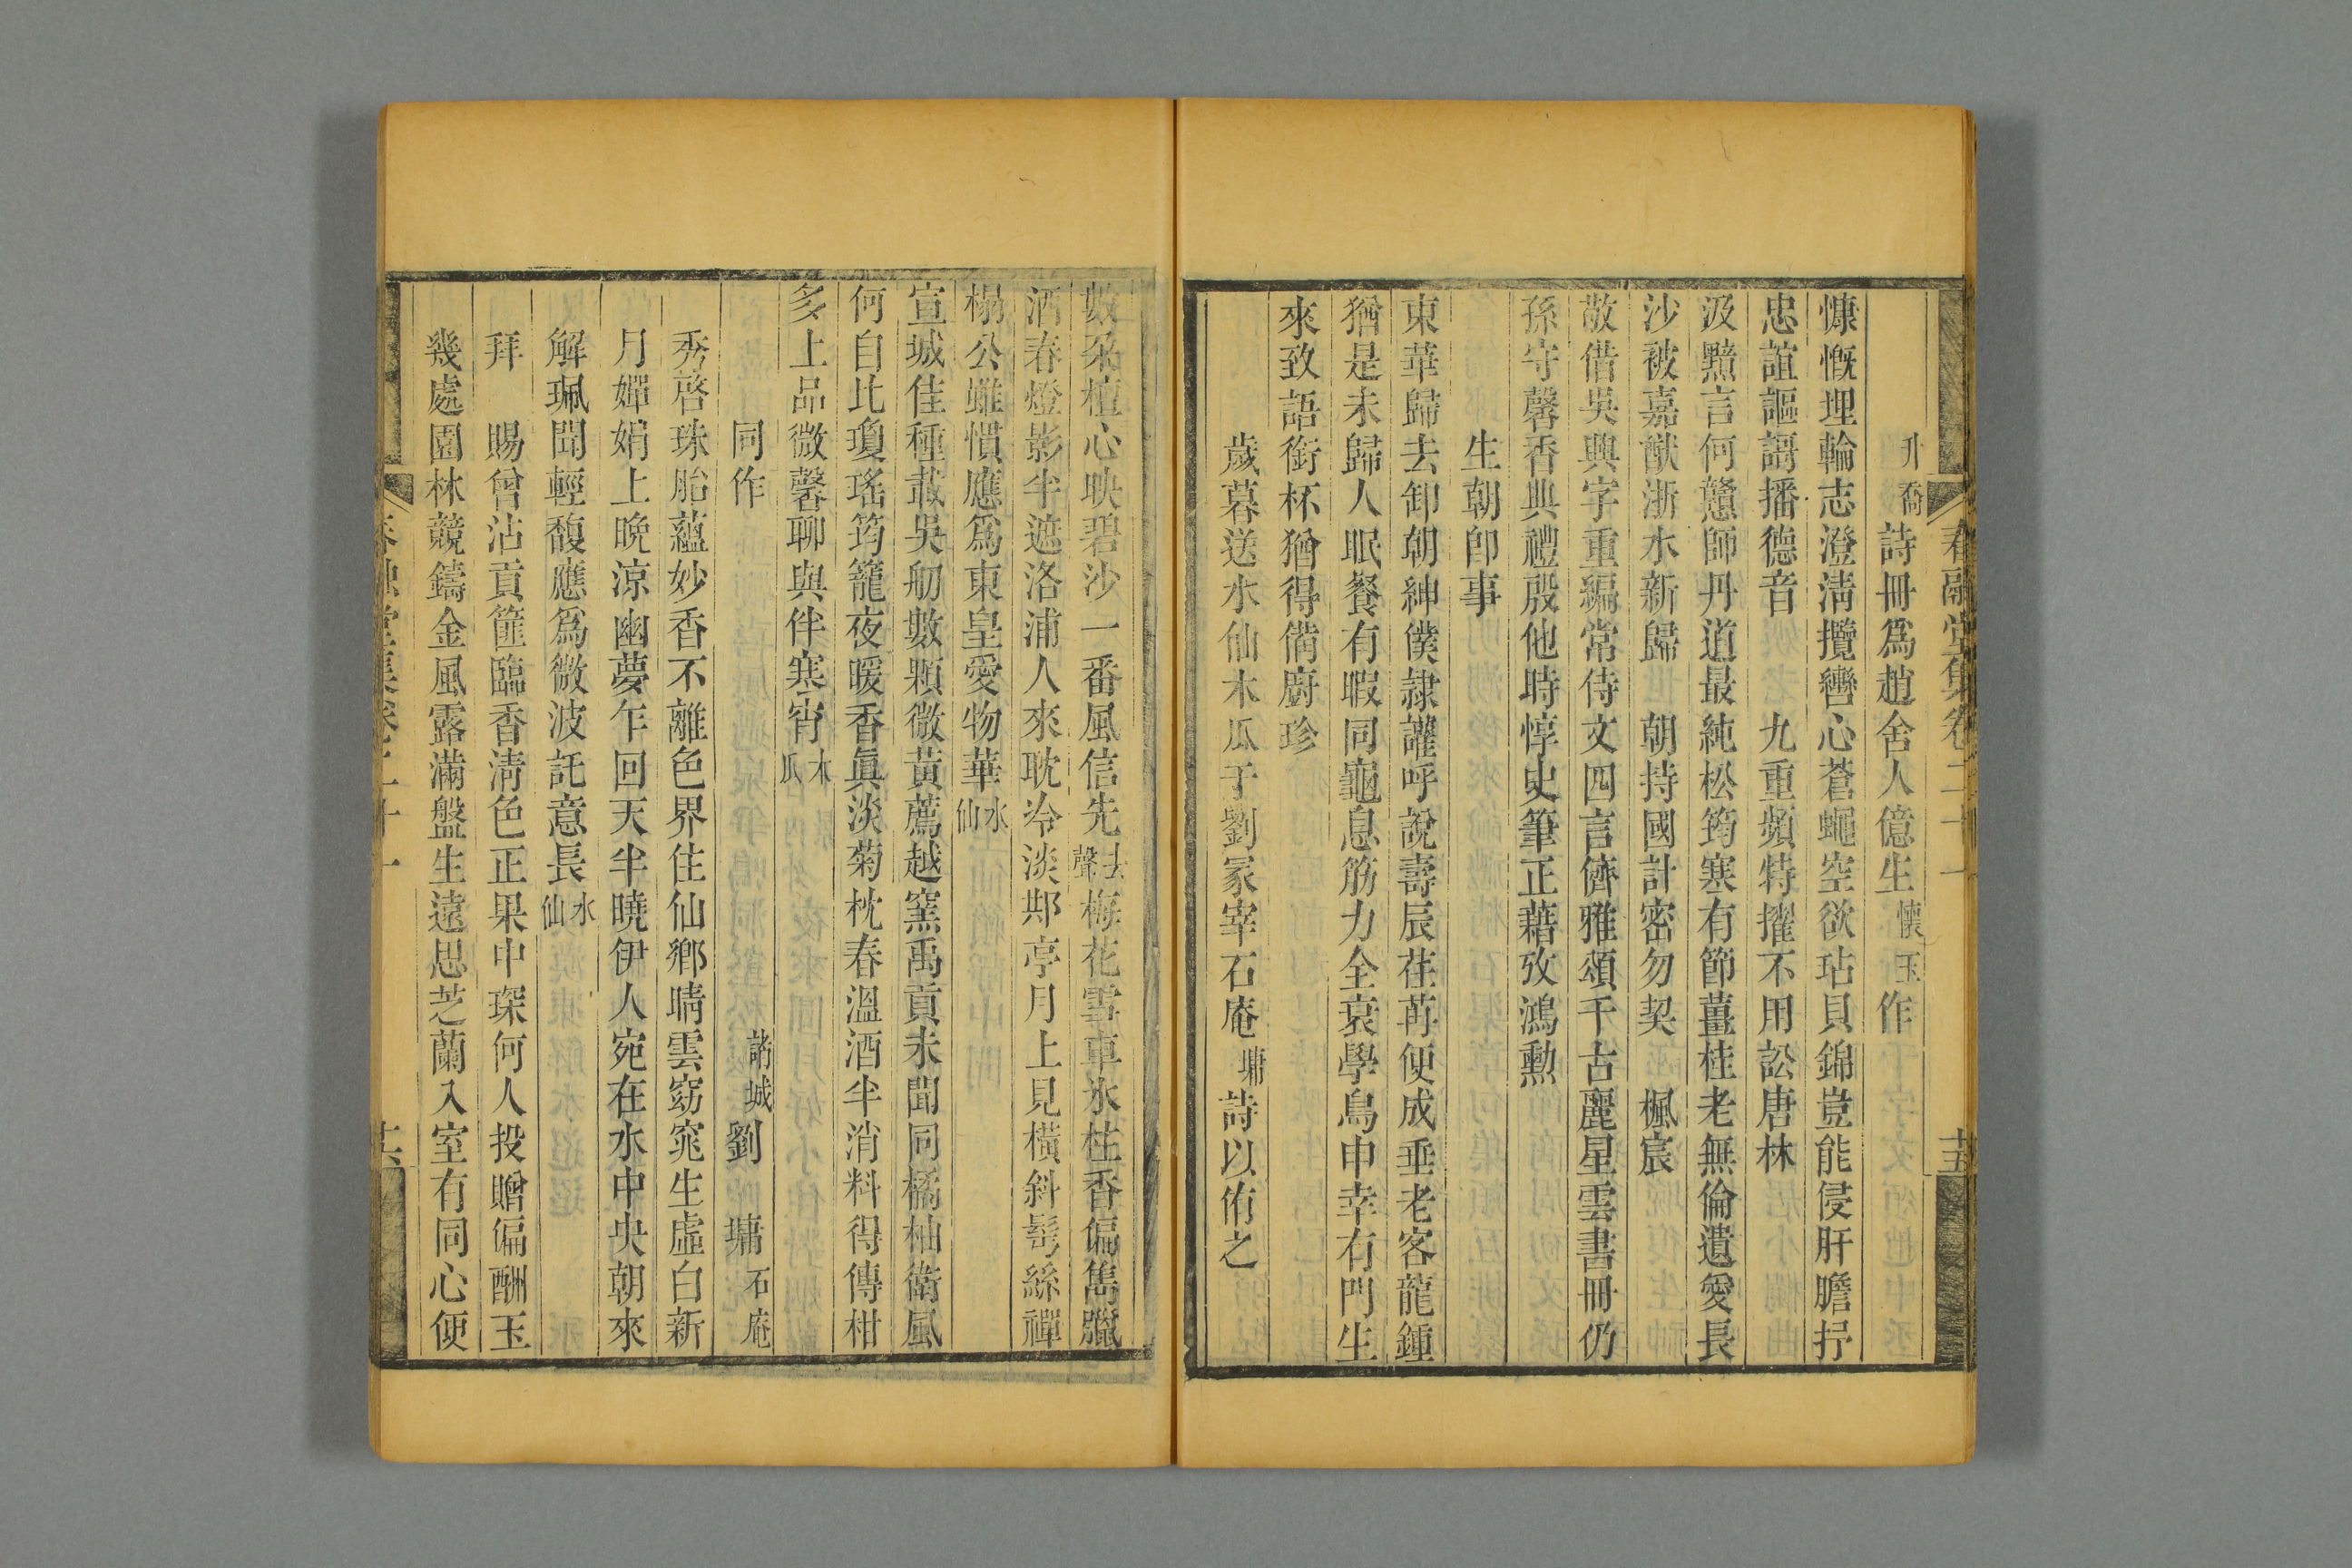 春融堂集卷二十一
十五
升喬詩冊爲趙舍人億生懷玉作
慷慨埋輪志澄淸攬轡心蒼蠅空欲玷貝錦豈能侵肝膽抒
忠誼謳謌播德音　九重頻特擢不用訟唐林
汲黯言何戇師丹道最純松筠寒有節薑桂老無倫遺愛長
沙被嘉猷浙水新歸　朝持國計密勿契　楓宸
敬借吳興字重編常侍文四言儕雅頌千古麗星雲書冊仍
孫守馨香典禮殷他時惇史筆正藉攷鴻勲
生朝卽事
東華歸去卸朝紳僕隷讙呼說壽辰荏苒便成垂老客龍鍾
猶是未歸人眠餐有暇同龜息筋力全衰學鳥申幸有門生
來致語銜杯猶得備廚珍
歲暮送水仙木瓜于劉冢宰石庵墉詩以侑之
數朶檀心映碧沙一番風信先去聲梅花雪車氷柱香偏雋臘
酒春燈影半遮洛浦人來耽冷淡邶亭月上見橫斜髩絲禪
榻公雖慣應爲東皇愛物華水仙
宣城佳種載吳舠數顆微黃薦越窯禹貢未聞同橘柚衞風
何自比瓊瑤筠籠夜暖香眞淡菊枕春溫酒半消料得傳柑
多上品微馨聊與伴寒宵木瓜
同作　諸城劉　墉石庵
秀啓珠胎蘊妙香不離色界住仙鄕晴雲窈窕生虛白新
月嬋娟上晚涼幽夢乍回天半曉伊人宛在水中央朝來
解珮聞輕馥應爲微波託意長水仙
拜　賜曾沾貢篚臨香淸色正果中琛何人投贈偏酬玉
幾處園林競鑄金風露滿盤生遠思芝蘭入室有同心便
春融堂集卷二十一
十六